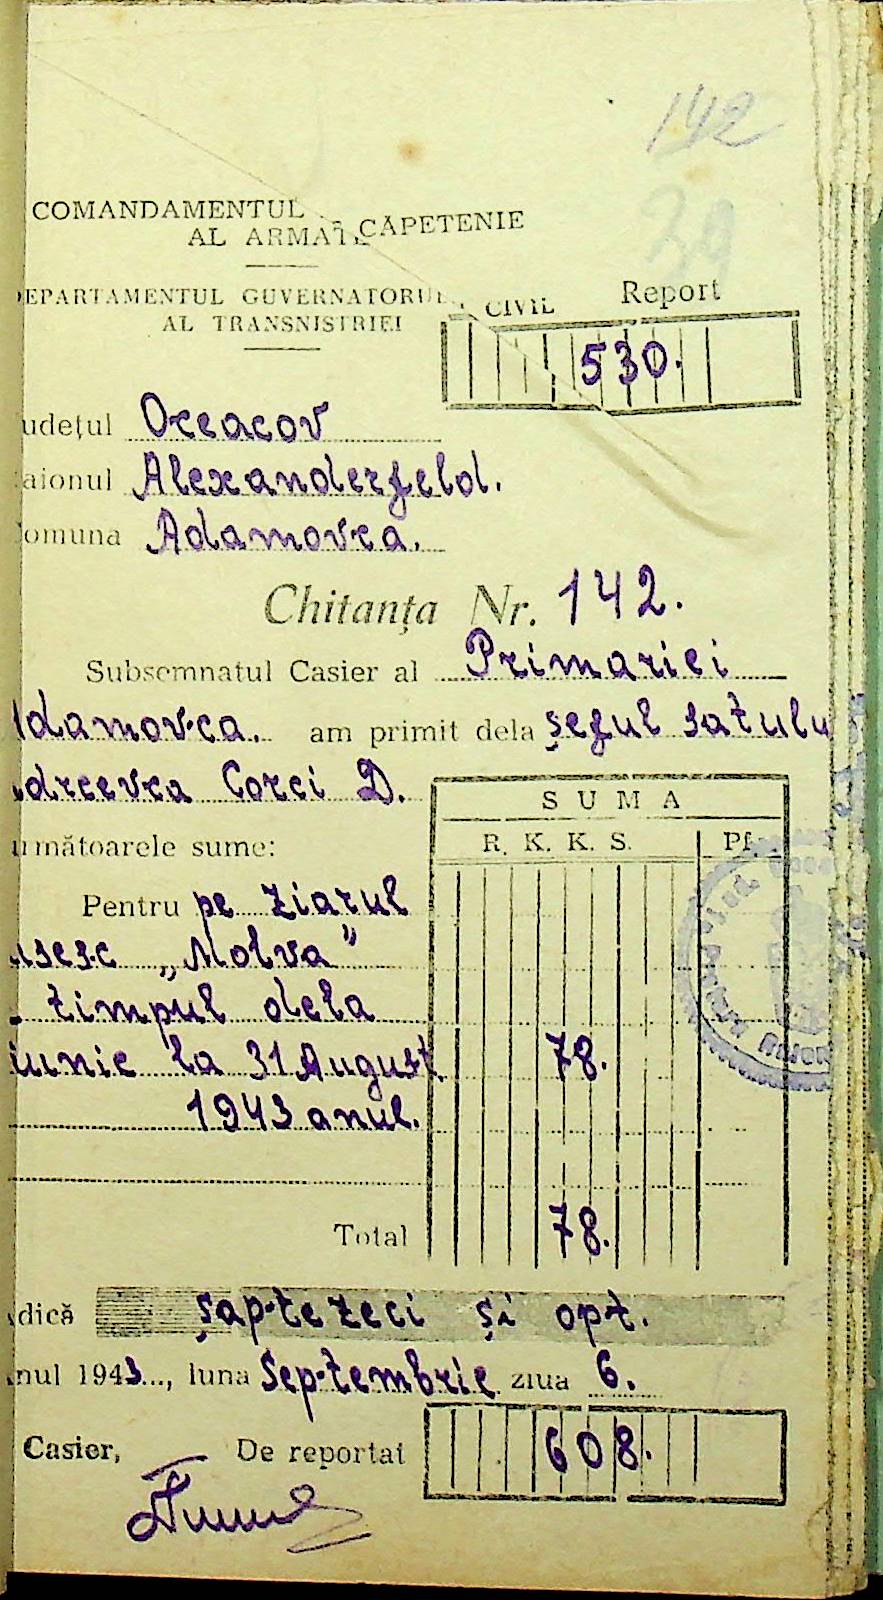 142
39
COMANDAMENTUL CAPETENIE
AL ARMATE
DEPARTAMENTUL GUVERNATORUL CIVIL
AL TRANSNISTRIEI
Report
530.
udețul Oceacov
aionul Alexanderfeld.
omuna Adamovca.
Chitanța Nr. 142.
Subsemnatul Casier al Primariei
damovca. am primit dela șeful satulu
Corci D.
SUMA
R. K. K. S. Pf.
următoarele sume:
Pentru pe ziarul
usesc „Molva”
timpul dela
iunie la 31 August 78.
1943 anul.
Total 78.
dică șaptezeci și opt.
nul 1943..., luna Septembrie ziua 6.
Casier, De reportat 608.